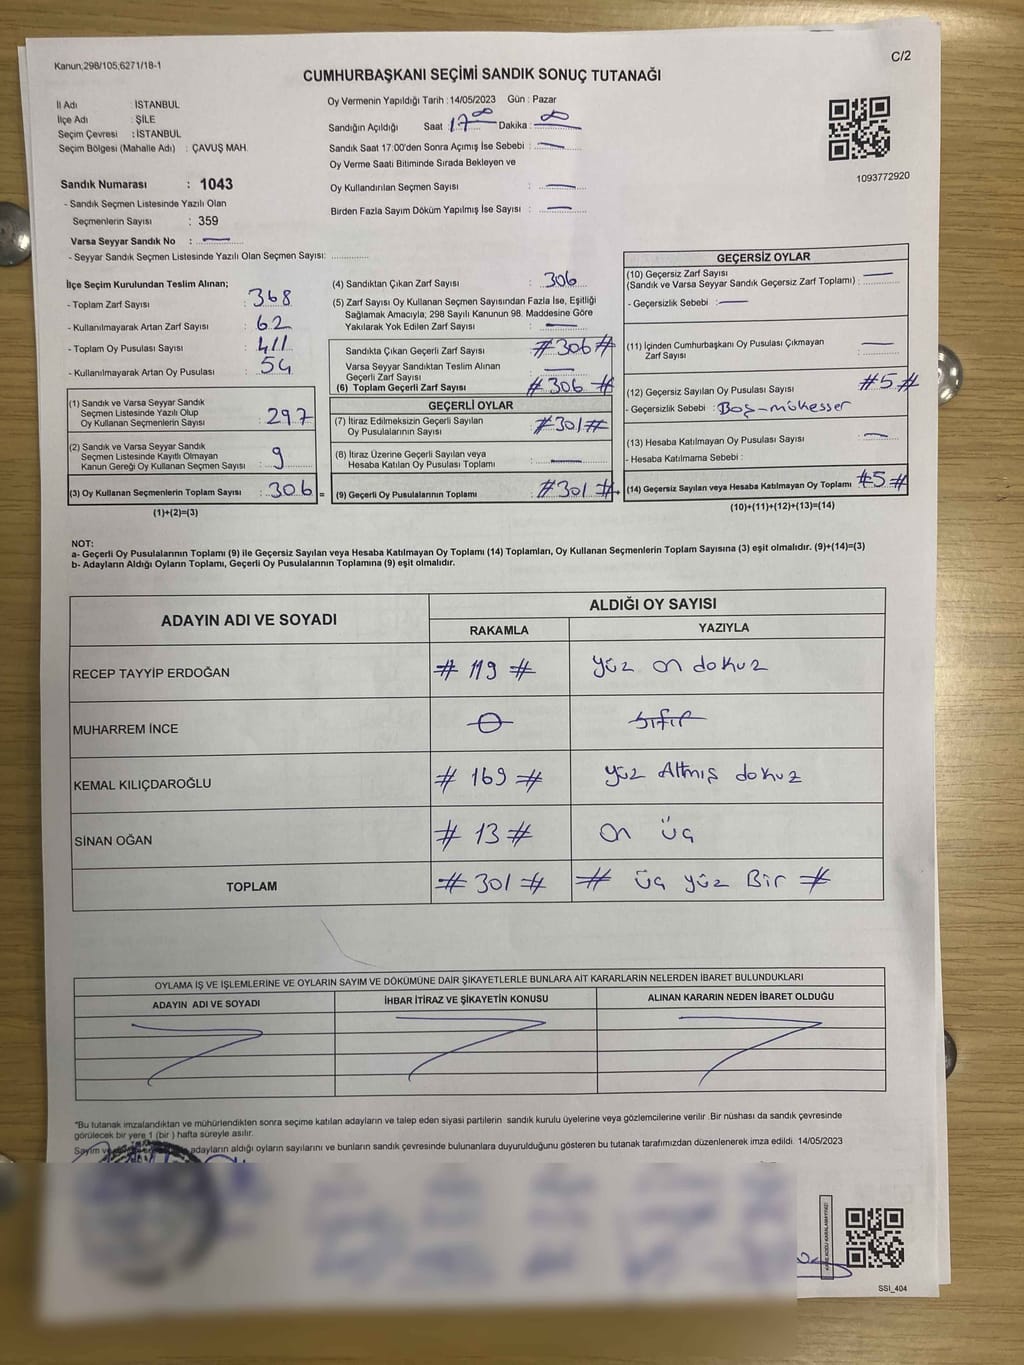 Kanun;298/105,6271/18-1
C/2
CUMHURBAŞKANI SEÇİMİ SANDIK SONUÇ TUTANAĞI
İl Adı : İSTANBUL
İlçe Adı : ŞİLE
Seçim Çevresi : İSTANBUL
Seçim Bölgesi (Mahalle Adı) : ÇAVUŞ MAH.
Sandık Numarası : 1043
- Sandık Seçmen Listesinde Yazılı Olan
Seçmenlerin Sayısı : 359
Varsa Seyyar Sandık No :
- Seyyar Sandık Seçmen Listesinde Yazılı Olan Seçmen Sayısı:
Oy Vermenin Yapıldığı Tarih : 14/05/2023 Gün : Pazar
Sandığın Açıldığı Saat : 17 00 Dakika : 00
Sandık Saat 17:00'den Sonra Açımış İse Sebebi :
Oy Verme Saati Bitiminde Sırada Bekleyen ve
Oy Kullandırılan Seçmen Sayısı :
Birden Fazla Sayım Döküm Yapılmış İse Sayısı :
1093772920
İlçe Seçim Kurulundan Teslim Alınan;
- Toplam Zarf Sayısı : 368
- Kullanılmayarak Artan Zarf Sayısı : 62
- Toplam Oy Pusulası Sayısı : 411
- Kullanılmayarak Artan Oy Pusulası : 54
(1) Sandık ve Varsa Seyyar Sandık
Seçmen Listesinde Yazılı Olup
Oy Kullanan Seçmenlerin Sayısı : 297
(2) Sandık ve Varsa Seyyar Sandık
Seçmen Listesinde Kayıtlı Olmayan
Kanun Gereği Oy Kullanan Seçmen Sayısı : 9
(3) Oy Kullanan Seçmenlerin Toplam Sayısı : 306 =
(1)+(2)=(3)
(4) Sandıktan Çıkan Zarf Sayısı : 306
(5) Zarf Sayısı Oy Kullanan Seçmen Sayısından Fazla İse, Eşitliği
Sağlamak Amacıyla; 298 Sayılı Kanunun 98. Maddesine Göre
Yakılarak Yok Edilen Zarf Sayısı :
Sandıkta Çıkan Geçerli Zarf Sayısı : #306#
Varsa Seyyar Sandıktan Teslim Alınan
Geçerli Zarf Sayısı :
(6) Toplam Geçerli Zarf Sayısı : #306#
GEÇERLİ OYLAR
(7) İtiraz Edilmeksizin Geçerli Sayılan
Oy Pusulalarının Sayısı : #301#
(8) İtiraz Üzerine Geçerli Sayılan veya
Hesaba Katılan Oy Pusulası Toplamı :
(9) Geçerli Oy Pusulalarının Toplamı : #301# +
GEÇERSİZ OYLAR
(10) Geçersiz Zarf Sayısı
(Sandık ve Varsa Seyyar Sandık Geçersiz Zarf Toplamı) :
- Geçersizlik Sebebi :
(11) İçinden Cumhurbaşkanı Oy Pusulası Çıkmayan
Zarf Sayısı :
(12) Geçersiz Sayılan Oy Pusulası Sayısı : #5#
- Geçersizlik Sebebi : Boş-mükesser
(13) Hesaba Katılmayan Oy Pusulası Sayısı :
- Hesaba Katılmama Sebebi :
(14) Geçersiz Sayılan veya Hesaba Katılmayan Oy Toplamı : #5#
(10)+(11)+(12)+(13)=(14)
NOT:
a- Geçerli Oy Pusulalarının Toplamı (9) ile Geçersiz Sayılan veya Hesaba Katılmayan Oy Toplamı (14) Toplamları, Oy Kullanan Seçmenlerin Toplam Sayısına (3) eşit olmalıdır. (9)+(14)=(3)
b- Adayların Aldığı Oyların Toplamı, Geçerli Oy Pusulalarının Toplamına (9) eşit olmalıdır.
ADAYIN ADI VE SOYADI ALDIĞI OY SAYISI
RAKAMLA YAZIYLA
RECEP TAYYİP ERDOĞAN # 119 # yüz on dokuz
MUHARREM İNCE 0 sıfır
KEMAL KILIÇDAROĞLU # 169 # yüz Altmış dokuz
SİNAN OĞAN # 13 # on üç
TOPLAM # 301 # # üç yüz Bir #
OYLAMA İŞ VE İŞLEMLERİNE VE OYLARIN SAYIM VE DÖKÜMÜNE DAİR ŞİKAYETLERLE BUNLARA AİT KARARLARIN NELERDEN İBARET BULUNDUKLARI
ADAYIN ADI VE SOYADI İHBAR İTİRAZ VE ŞİKAYETİN KONUSU ALINAN KARARIN NEDEN İBARET OLDUĞU
*Bu tutanak imzalandıktan ve mühürlendikten sonra seçime katılan adayların ve talep eden siyasi partilerin sandık kurulu üyelerine veya gözlemcilerine verilir .Bir nüshası da sandık çevresinde
görülecek bir yere 1 (bir ) hafta süreyle asılır.
Sayım ve adayların aldığı oyların sayılarını ve bunların sandık çevresinde bulunanlara duyurulduğunu gösteren bu tutanak tarafımızdan düzenlenerek imza edildi. 14/05/2023
SSI_404